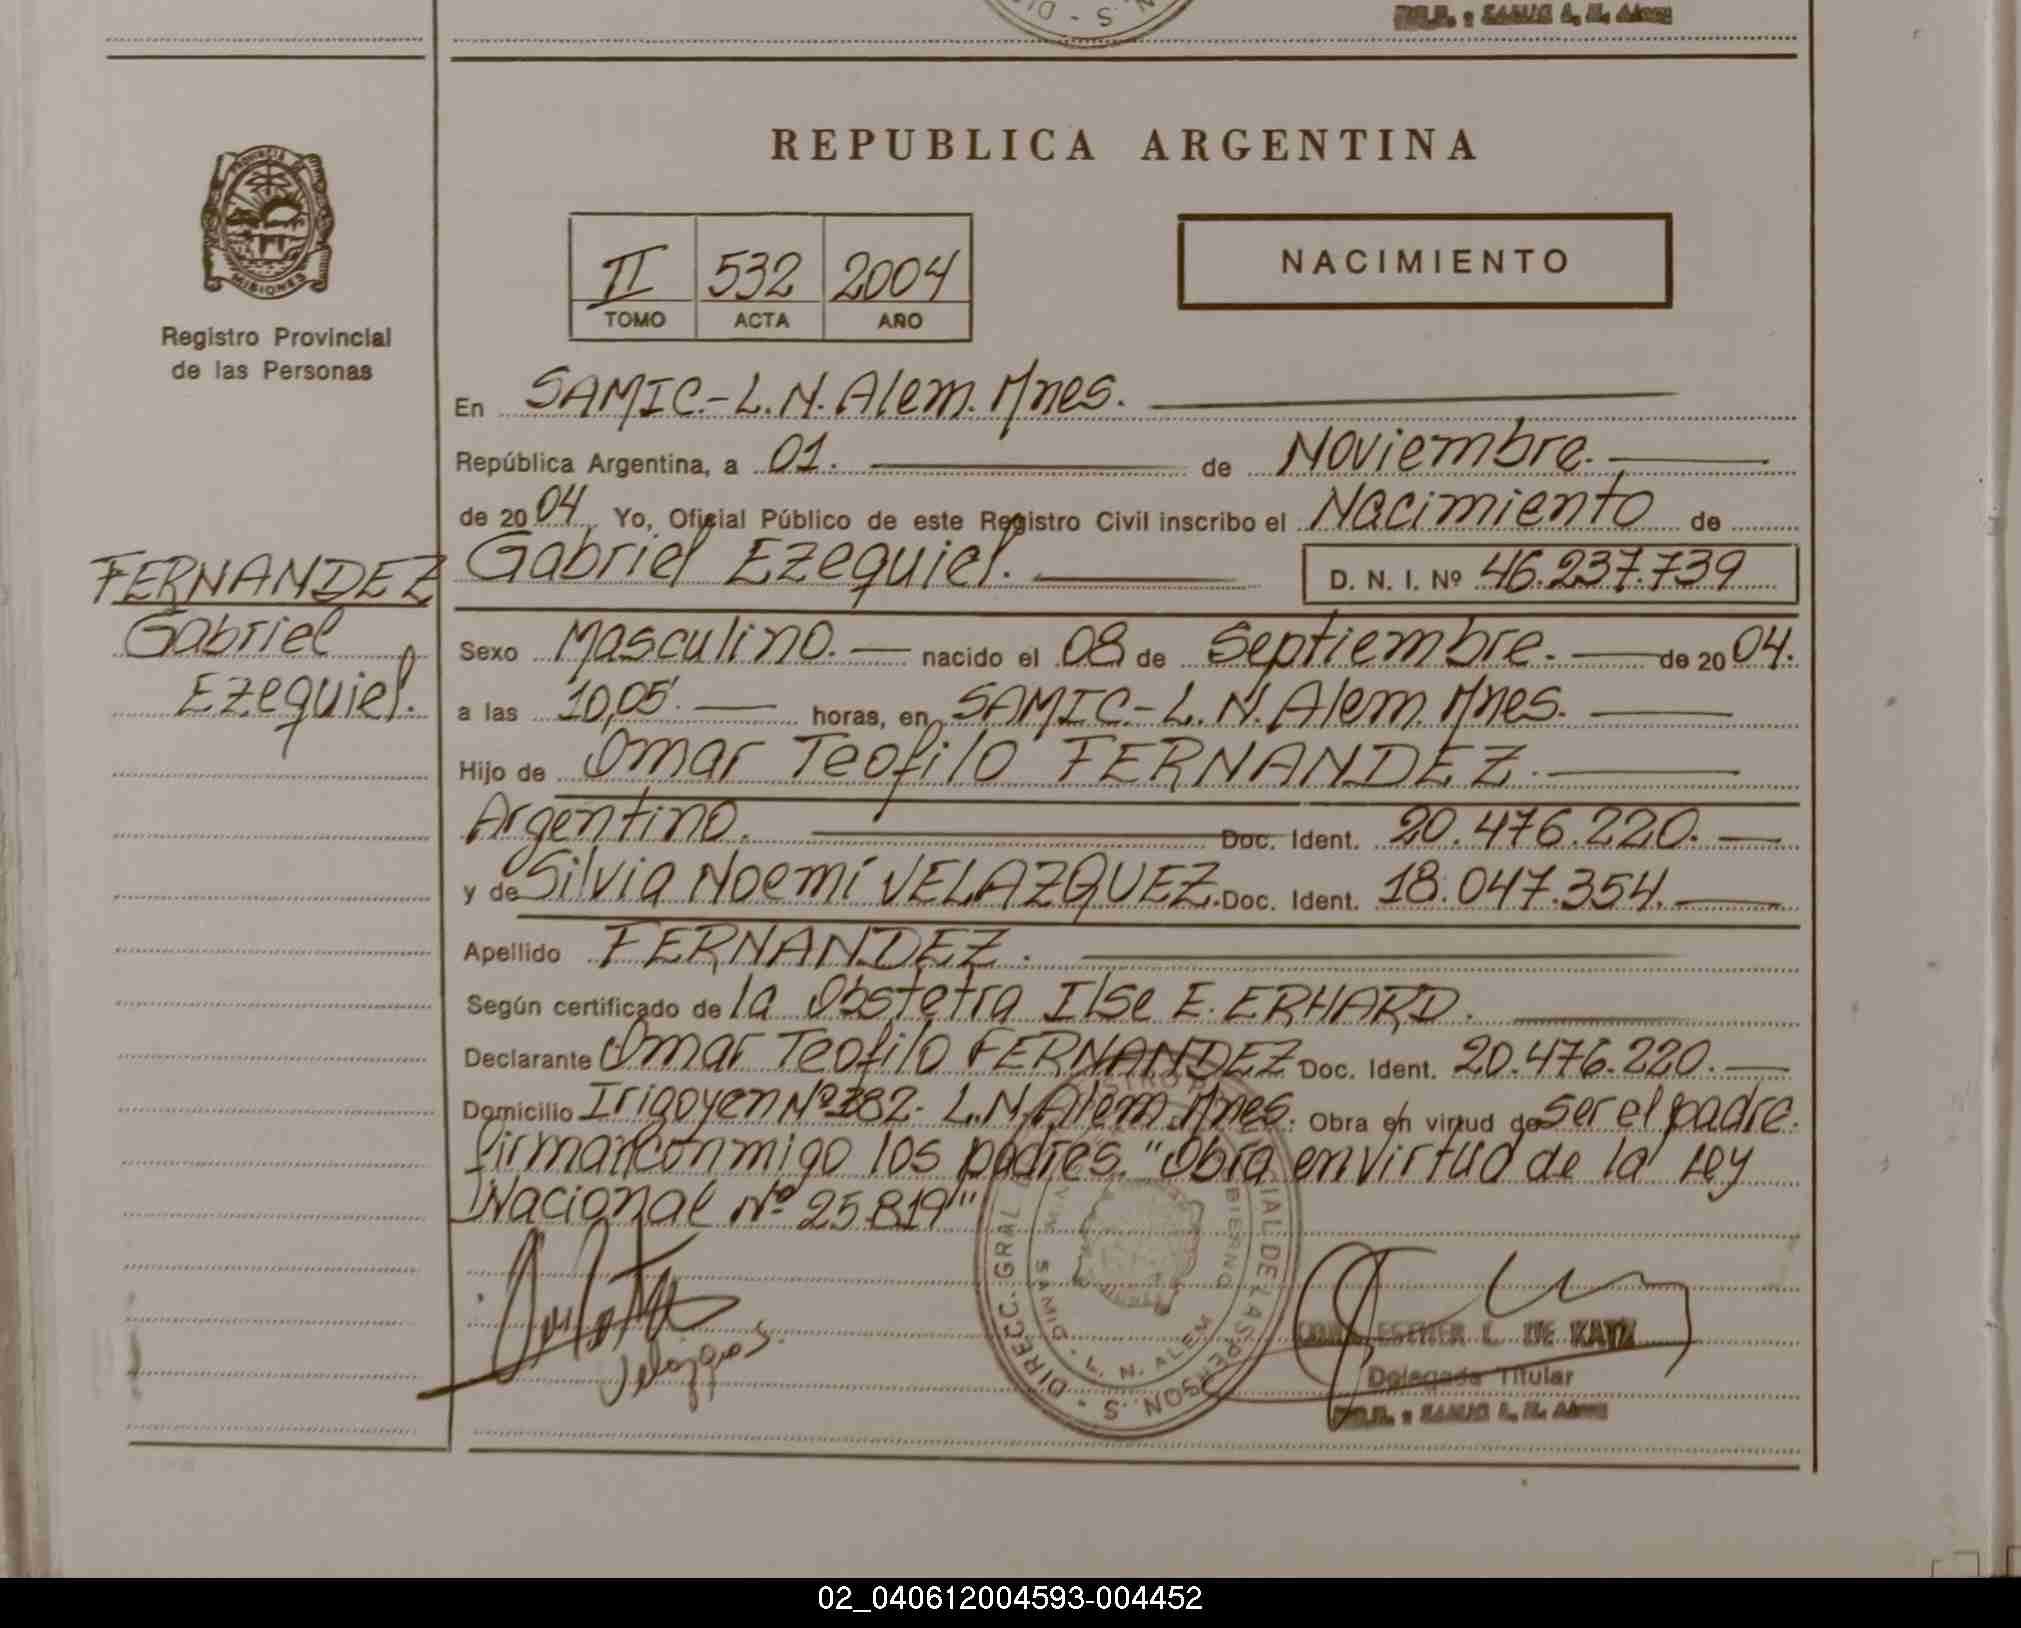 REPUBLICA ARGENTINA
PROVINCIA DE
MISIONES
Registro Provincial
de las Personas
II 532 2004
TOMO ACTA AÑO
NACIMIENTO
En SAMIC.-L.N.Alem.Mnes.
República Argentina, a 01. de Noviembre.
de 2004 Yo, Oficial Público de este Registro Civil inscribo el Nacimiento de
Gabriel Ezequiel. D. N. I. Nº 46.237.739
FERNANDEZ
Gabriel
Ezequiel.
Sexo Masculino. nacido el 08 de Septiembre. de 2004.
a las 10,05. horas, en SAMIC-L.N.Alem.Mnes.
Hijo de Omar Teofilo FERNANDEZ.
Argentino. Doc. Ident. 20.476.220.
y de Silvia Noemí VELAZQUEZ. Doc. Ident. 18.047.354.
Apellido FERNANDEZ.
Según certificado de la Obstetra Ilse E. ERHARD.
Declarante Omar Teofilo FERNANDEZ Doc. Ident. 20.476.220.
Domicilio Irigoyen Nº 382. L.N.Alem.Mnes. Obra en virtud de ser el padre.
firman conmigo los padres. "Obra en virtud de la Ley
Nacional Nº 25.819"
DIRECC. GRAL DE LAS PERSON.S
SAMIC - L. N. ALEM
ESTHER L. DE KATZ
Delegada Titular
02_040612004593-004452